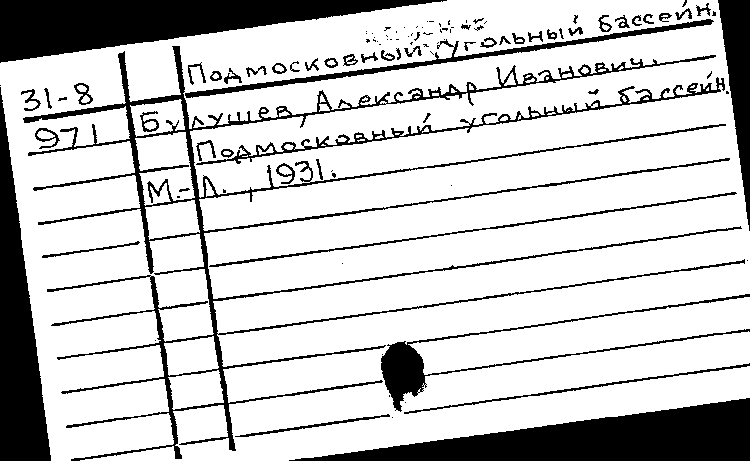 Подмосковный угольный бассейн.
31-8
971 Булушев, Александр Иванович.
Подмосковный угольный бассейн
М.-Л., 1931.